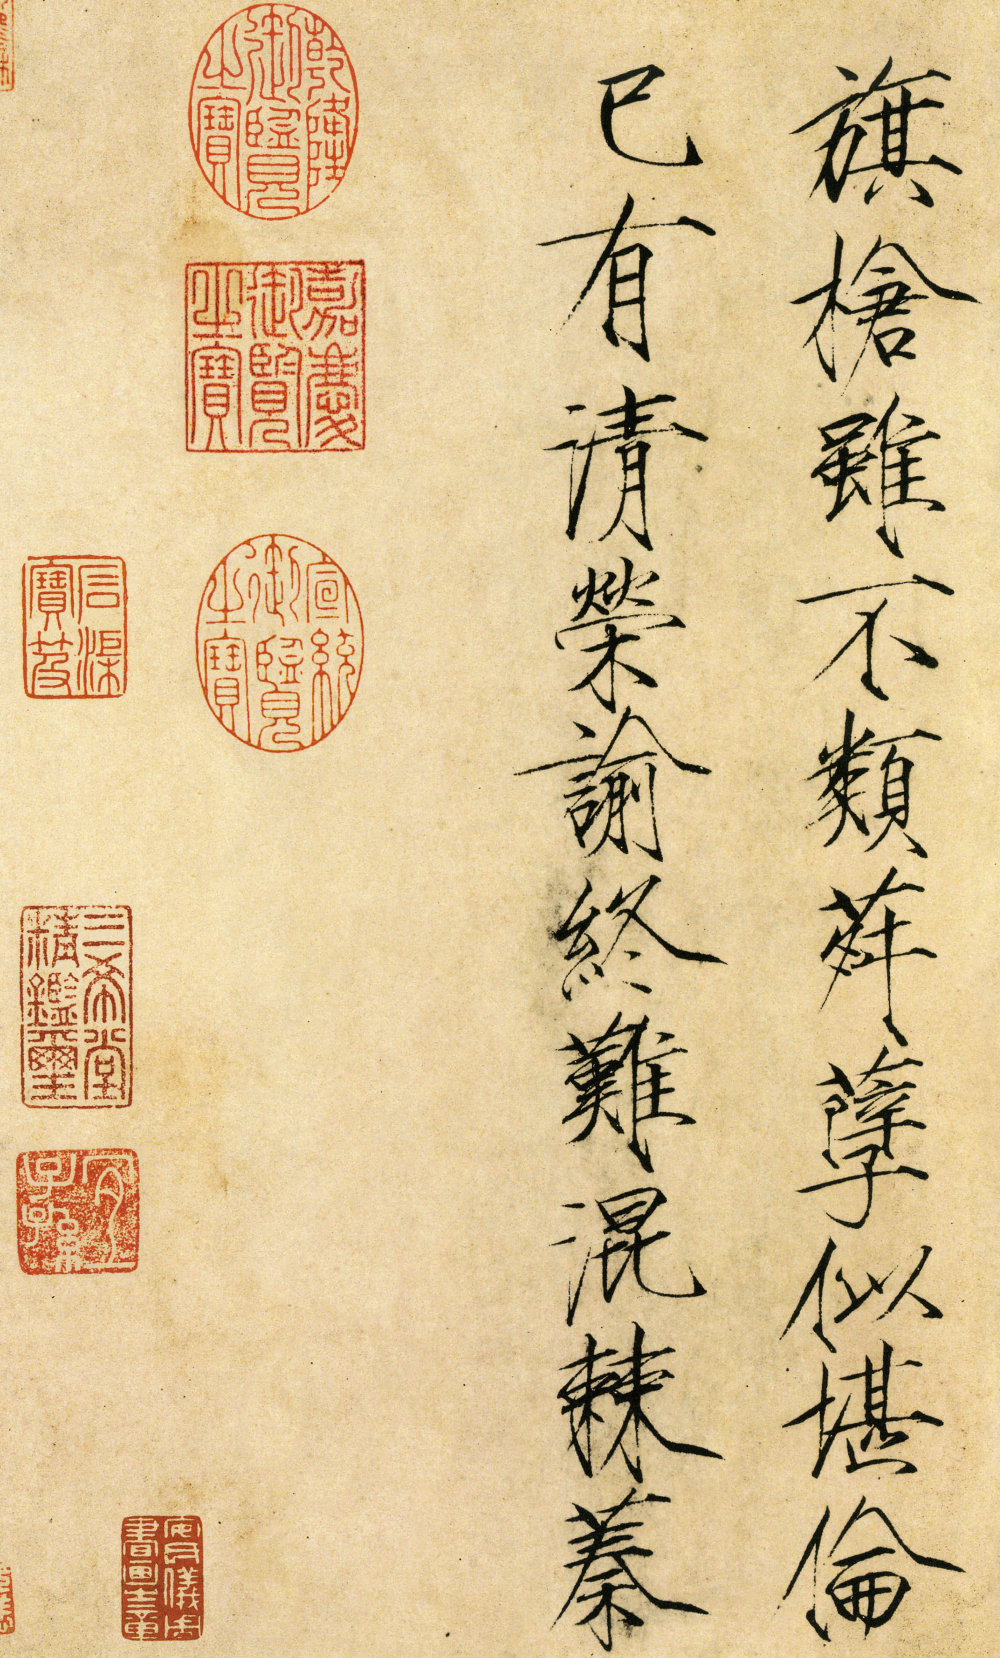 旗槍雖不類荈孽似堪倫
已有清榮諭終難混棘蓁
乾隆御覽之寶
嘉慶御覽之寶
宣統御覽之寶
安氏儀周書畫之章
石渠寶笈
三希堂精鑑璽
宜子孫